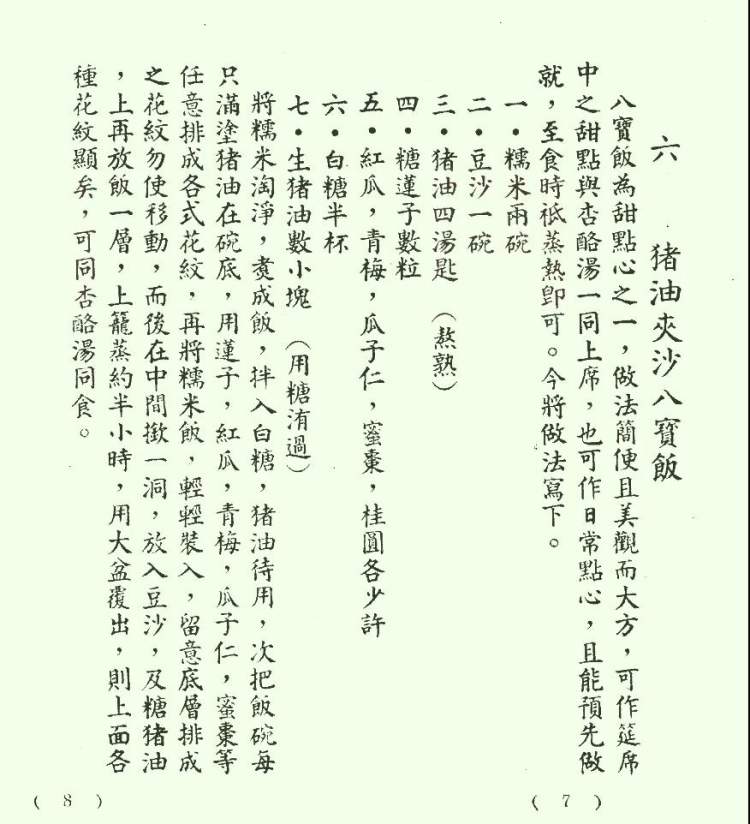 六　豬油夾沙八寶飯
八寶飯為甜點心之一，做法簡便且美觀而大方，可作筵席
中之甜點與杏酪湯一同上席，也可作日常點心，且能預先做
就，至食時祗蒸熱卽可。今將做法寫下。
一・糯米兩碗
二・豆沙一碗
三・猪油四湯匙　（熬熟）
四・糖蓮子數粒
五・紅瓜，青梅，瓜子仁，蜜棗，桂圓各少許
六・白糖半杯
七・生猪油數小塊　（用糖洧過）
將糯米淘淨，煑成飯，拌入白糖，猪油待用，次把飯碗每
只滿塗猪油在碗底，用蓮子，紅瓜，青梅，瓜子仁，蜜棗等
任意排成各式花紋，再將糯米飯，輕輕裝入，留意底層排成
之花紋勿使移動，而後在中間撳一洞，放入豆沙，及糖猪油
，上再放飯一層，上籠蒸約半小時，用大盆覆出，則上面各
種花紋顯矣，可同杏酪湯同食。
( 7 )
( 8 )